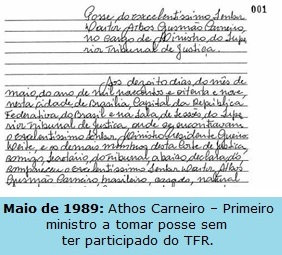 001
Posse do excelentíssimo Senhor
Doutor Athos Gusmão Carneiro,
no cargo de Ministro do Supe
rior Tribunal de Justiça.
Aos dezoito dias do mês de
maio, do ano de mil novecentos e oitenta e nove,
nesta cidade de Brasília, Capital da República
Federativa do Brasil e na Sala de Sessões do Supe
rior Tribunal de Justiça, onde se encontravam
o excelentíssimo Senhor Ministro Presidente Gueiros
Leite, e os demais membros desta Corte de Justiça,
comigo Secretário do Tribunal, abaixo declarado
compareceu o excelentíssimo Senhor Doutor Athos
Gusmão Carneiro, brasileiro, casado, natural
Maio de 1989: Athos Carneiro – Primeiro
ministro a tomar posse sem
ter participado do TFR.